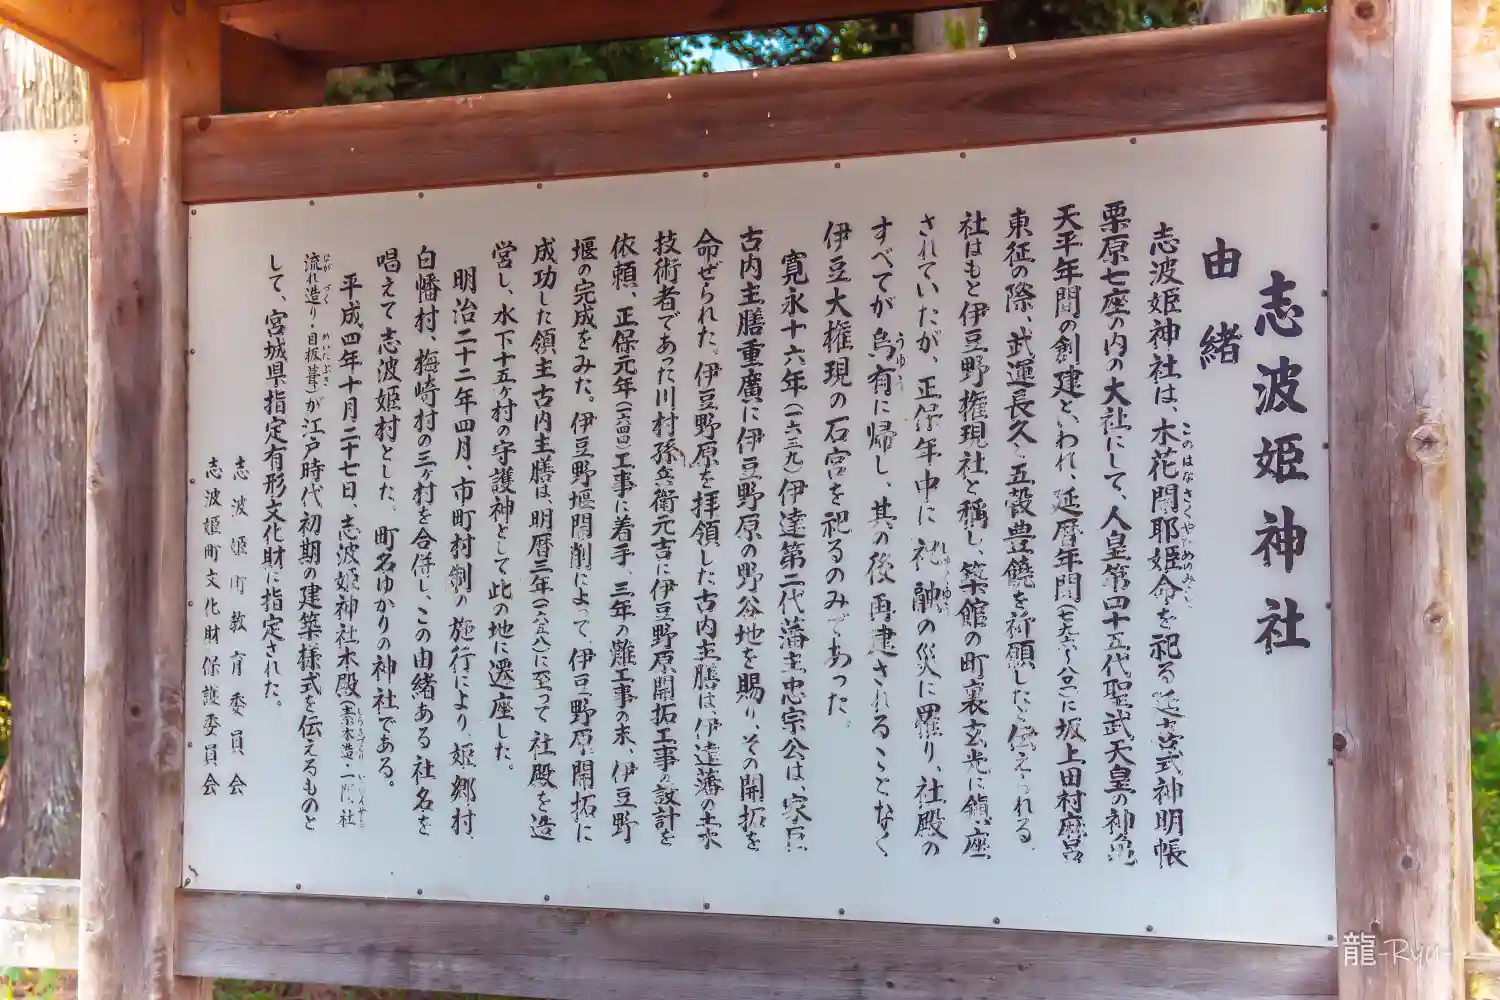 志波姫神社
由緒
志波姫神社は、木花開耶姫命を祀る延喜式神明帳
このはなさくやひめのみこと
栗原七座の内の大社にして、人皇第四十五代聖武天皇の神亀
天平年間の創建といわれ、延暦年間に坂上田村麻呂
東征の際、武運長久、五穀豊饒を祈願したと伝えられる。
社はもと伊豆野権現社と稱し、築館の町裏玄光に鎮座
されていたが、正保年中に祝融の災に罹り、社殿の
しゅくゆう
すべてが烏有に帰し、其の後再建されることなく
うゆう
伊豆大権現の石宮を祀るのみであった。
寛永十六年(一六三九)伊達第二代藩主忠宗公は、家臣
古内主膳重廣に伊豆野原の野谷地を賜り、その開拓を
命ぜられた。伊豆野原を拝領した古内主膳は、伊達藩の土木
技術者であった川村孫兵衛元吉に伊豆野原開拓工事の設計を
依頼、正保元年(一六四四)工事に着手、三年の難工事の末、伊豆野
堰の完成をみた。伊豆野堰開削によって、伊豆野原開拓に
成功した領主古内主膳は、明暦三年(一六五八)に至って社殿を造
営し、水下十五ヶ村の守護神として此の地に遷座した。
明治二十二年四月、市町村制の施行により、姫郷村、
白幡村、梅崎村の三ヶ村を合併し、この由緒ある社名を
唱えて志波姫村とした。町名ゆかりの神社である。
平成四年十月二十七日、志波姫神社本殿(素木造・一間社
しらきづくり いっけんしゃ
流れ造り・目板葺)が江戸時代初期の建築様式を伝えるものと
ながれづくり めいたぶき
して、宮城県指定有形文化財に指定された。
志波姫町教育委員会
志波姫町文化財保護委員会
龍-Ryu-